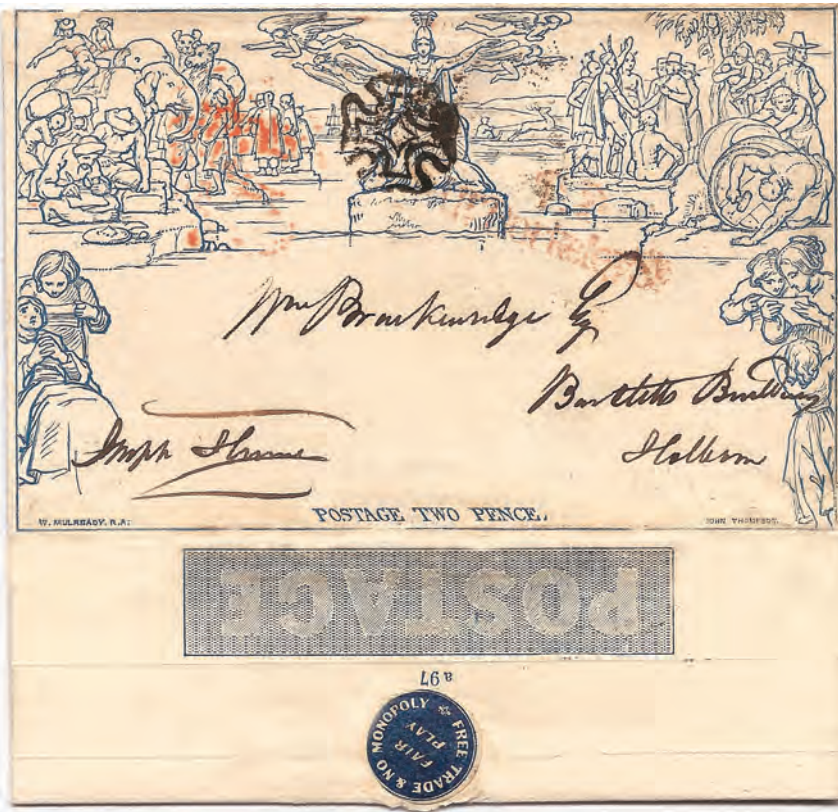 Wm Brackenridge Esq
Bartletts Buildings
Holborn
Joseph Hume
POSTAGE TWO PENCE.
W. MULREADY. R.A.
JOHN THOMPSON.
POSTAGE
a 97
FREE TRADE & NO MONOPOLY
FAIR
PLAY